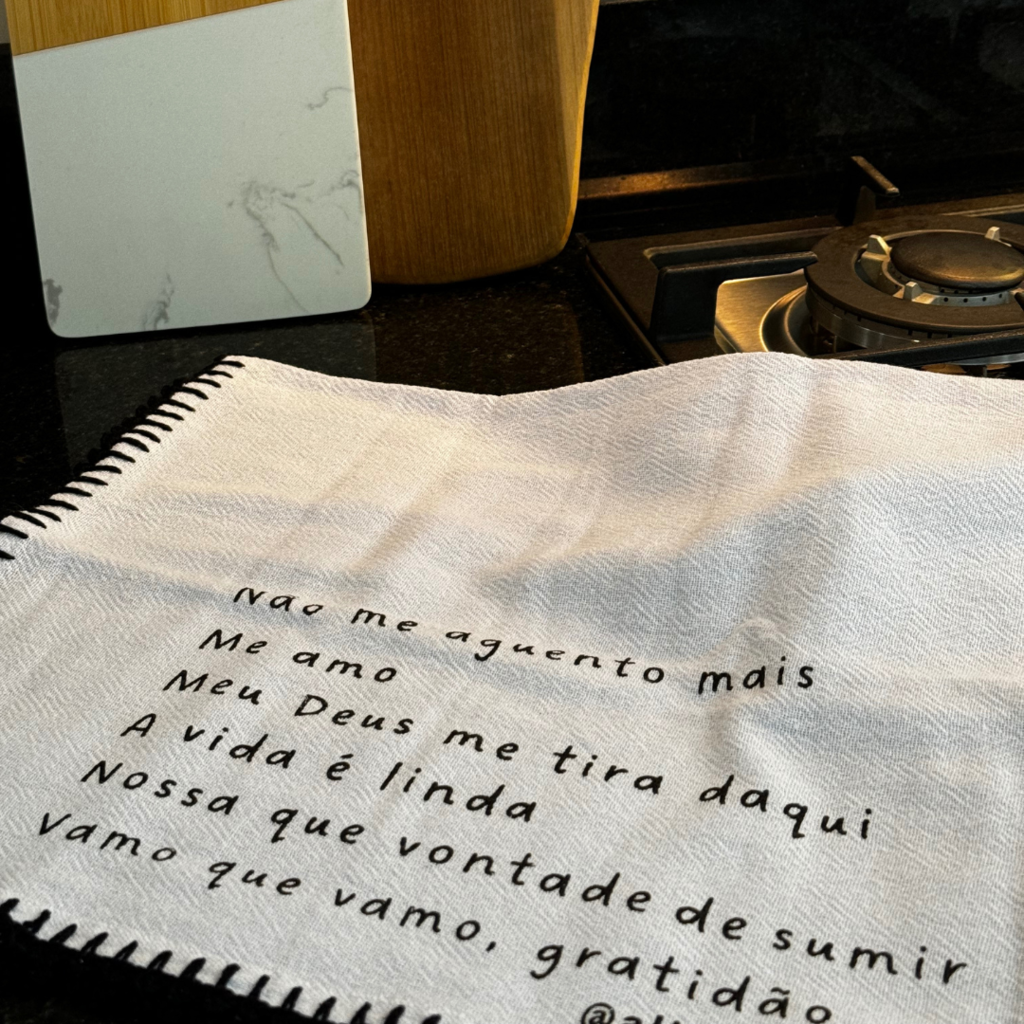 Não me aguento mais
Me amo
Meu Deus me tira daqui
A vida é linda
Nossa que vontade de sumir
Vamo que vamo, gratidão